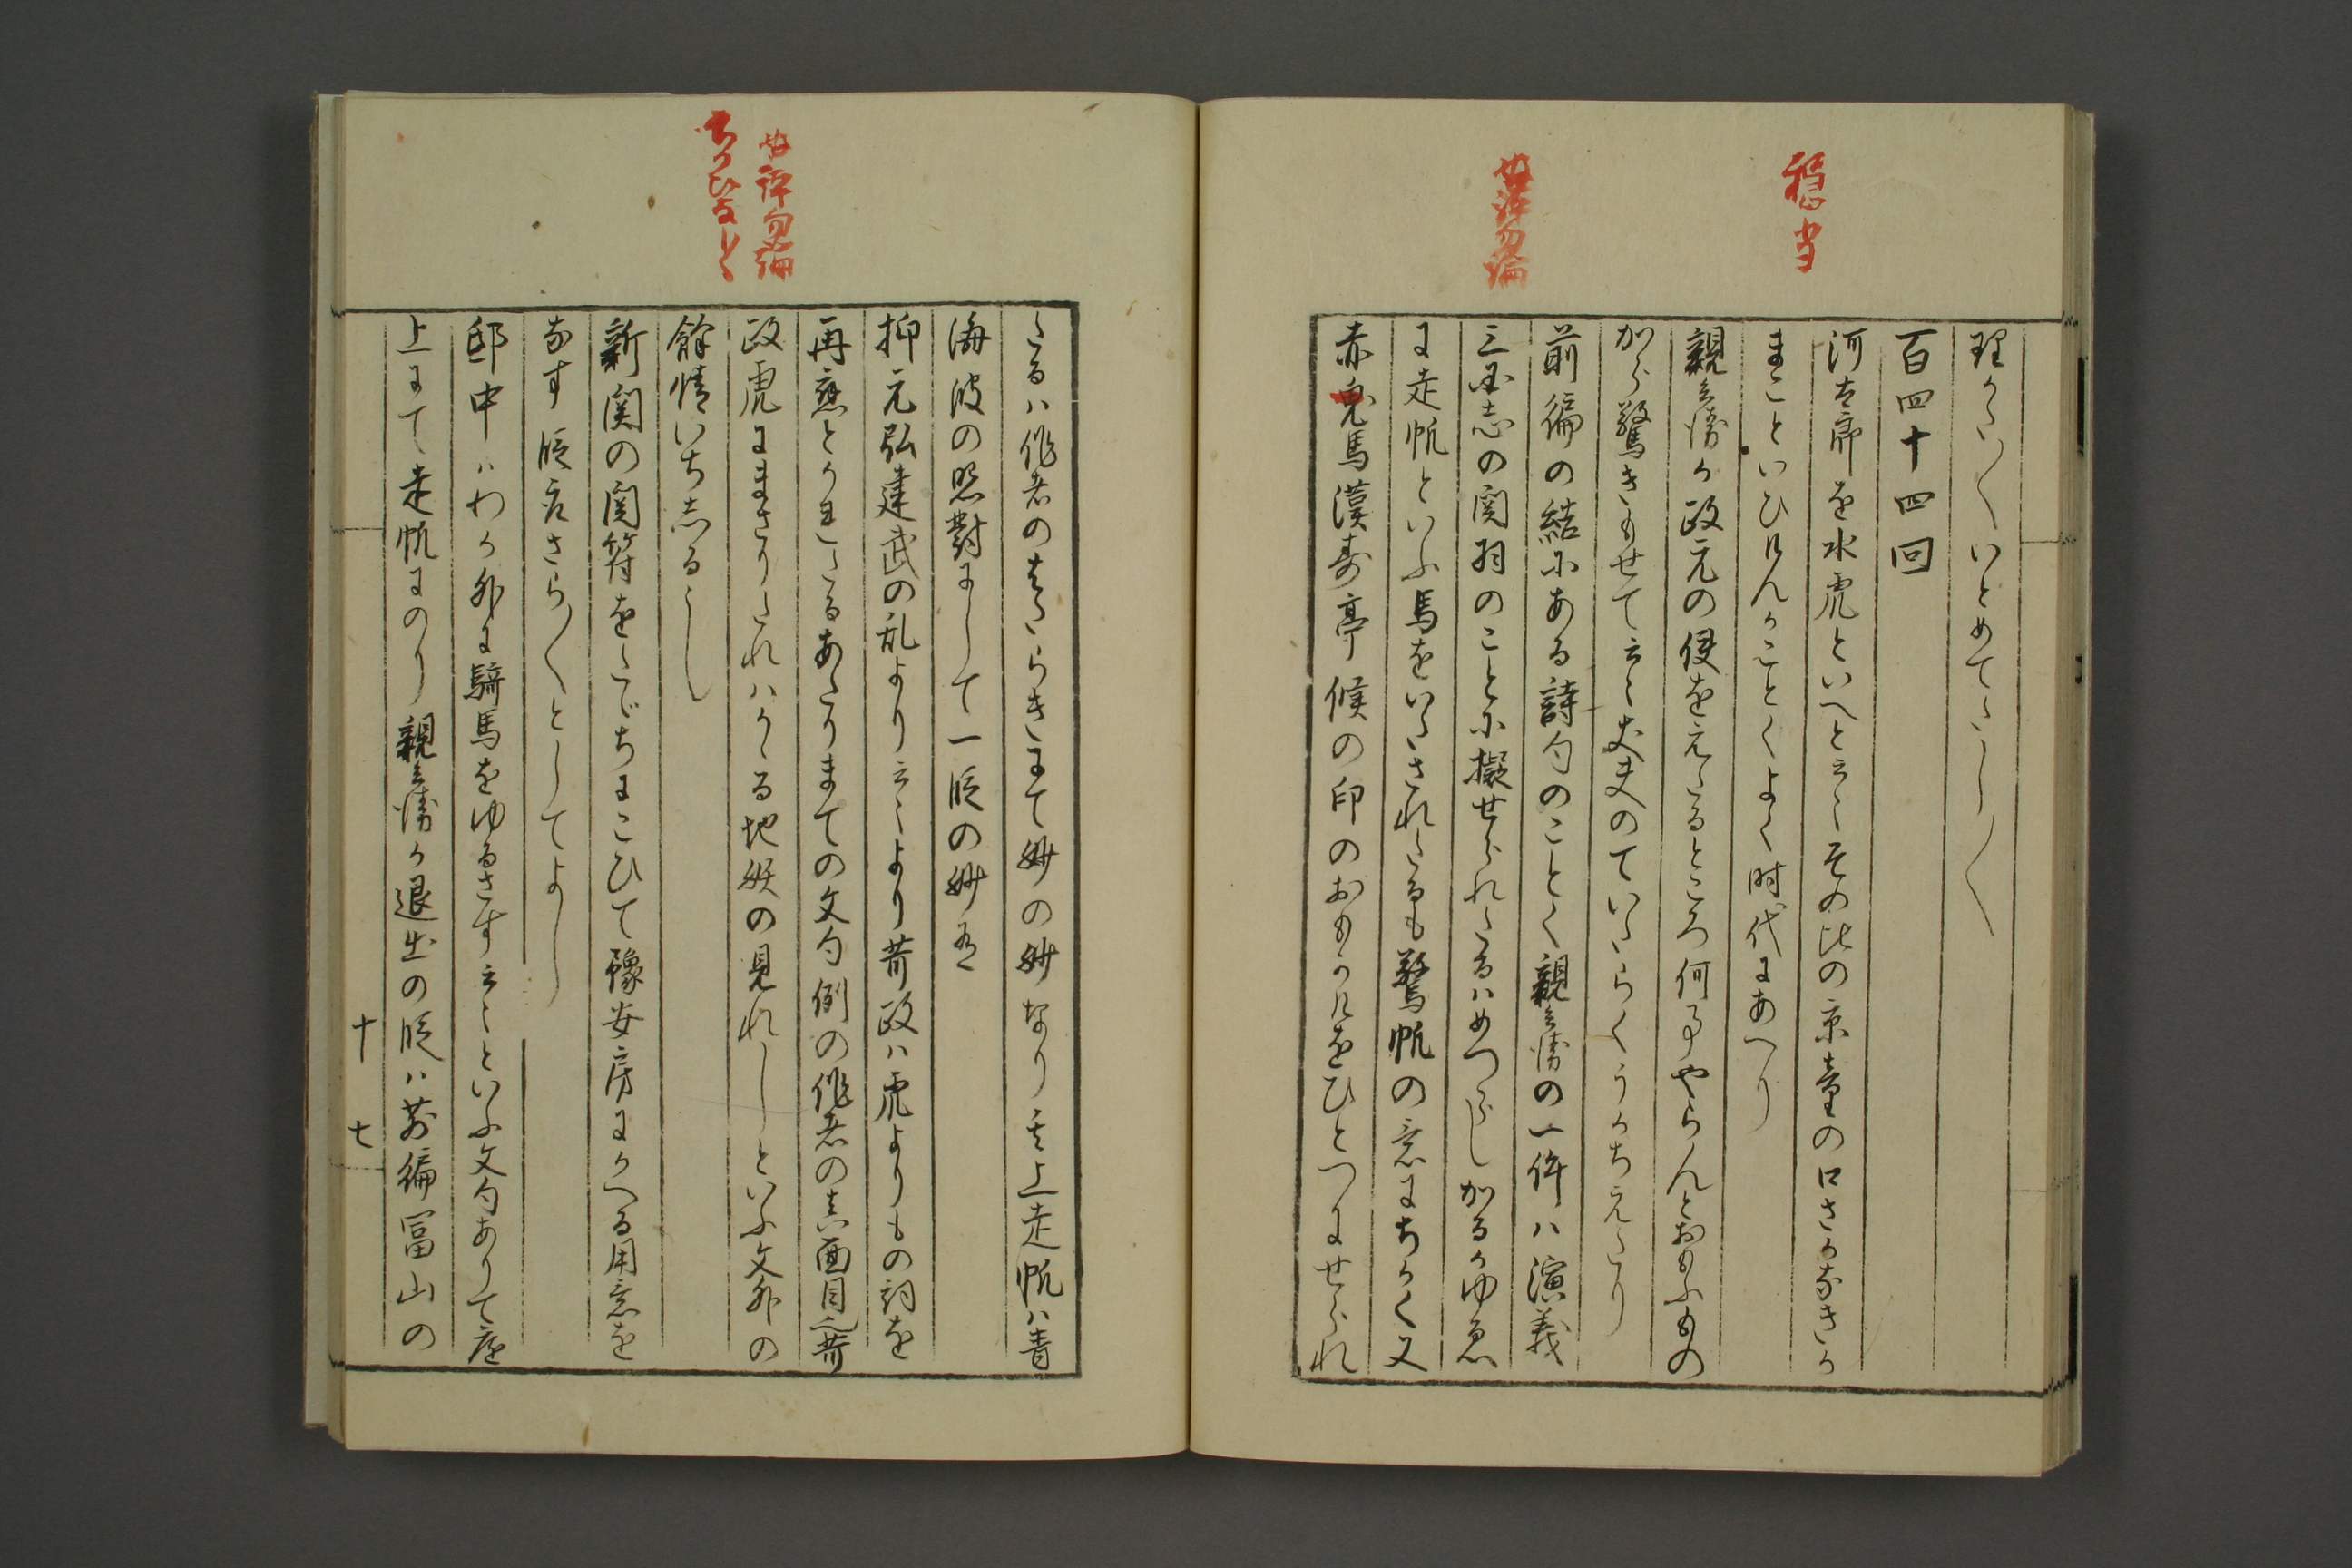 穏当
妙評勿論
理かたく／＼いとめてたし／＼
百四十四回
河太郎を水虎といへと云々その比の京童の口さかなきか
まこといひけんかことくよく時代にあへり
親兵衛か政元の便をえたるところ何事やらんとおもふもの
から驚きもせて云々丈夫のていたらくうかちえたり
前編の結にある詩句のことく親兵衛の一件ハ演義
三国志の関羽のことに擬せられたるハめつらしかるかゆゑ
に走帆といふ馬をいたされたるも驚帆の意にちかく又
赤兎馬漢寿亭候の印のおもかけをひとつにせられ
妙評勿論
ちかひなく
たるハ作者のはたらきにて妙の妙なり其上走帆ハ青
海波の照対にして一段の妙有
抑元弘建武の乱より云々より苛政ハ虎よりもの詞を
再応とかれたるあたりまての文句例の作者の真面目也苛
政虎にまさりたれハかゝる地妖の見れしといふ文外の
餘情いちしるし
新関の関符をたてちにこひて豫安房にかへる用意を
なす段落さら／＼としてよし
邸中ハわか外に騎馬をゆるさす云々といふ文句ありて庭
上にて走帆にのり親兵衛か退出の段ハ前編冨山の
十七